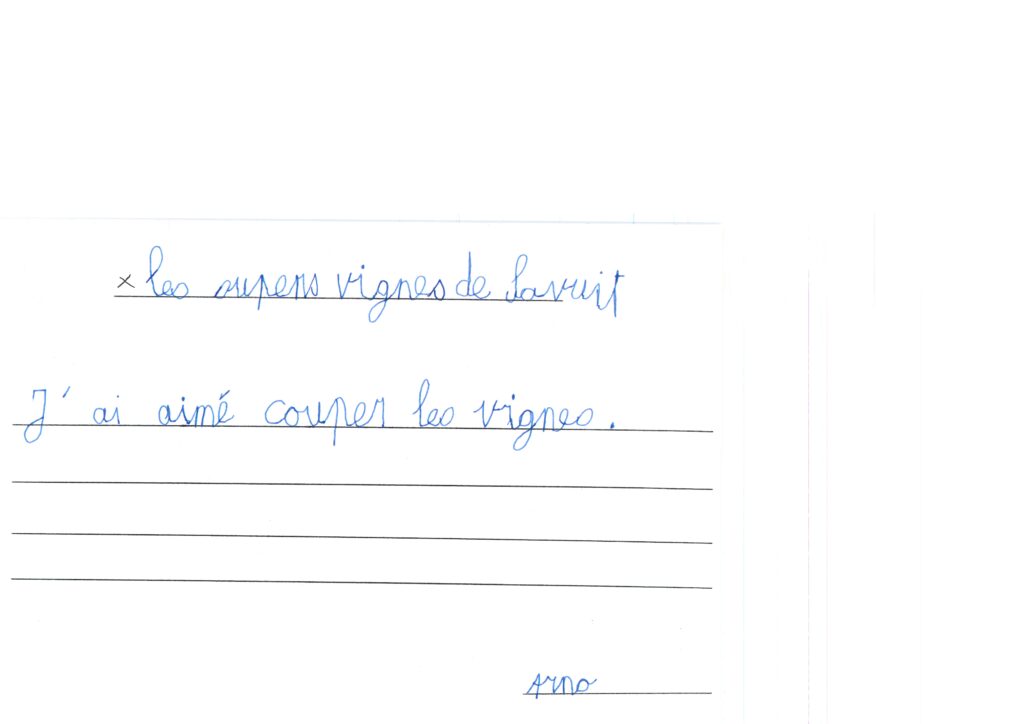 × les supers vignes de Savuit
J'ai aimé couper les vignes.
Arno